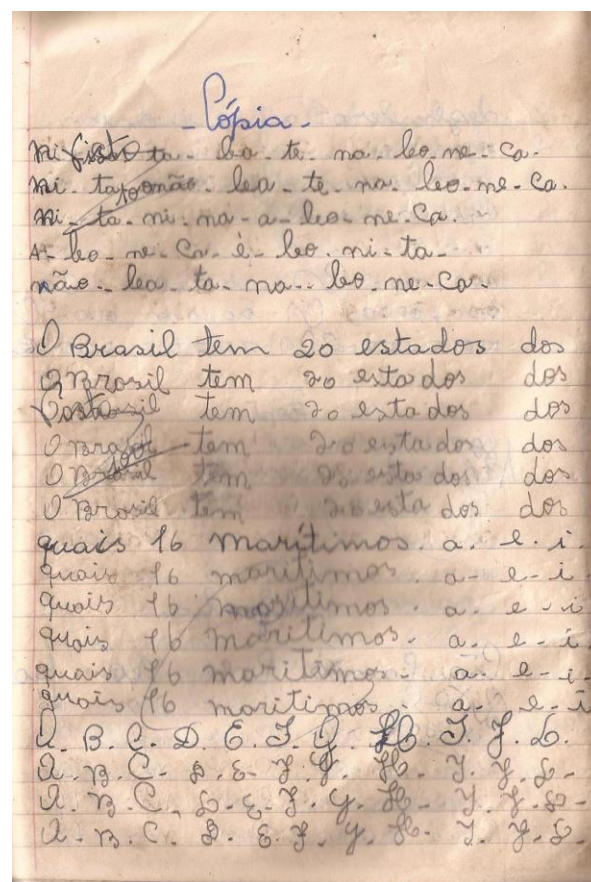 - Cópia -
Ni - ta - ba - te - na - bo - ne - ca.
Ni - ta não - ba - te - na - bo - ne - ca.
Ni - ta - ni - na - a - bo - ne - ca.
A - bo - ne - ca - é - bo - ni - ta -
não - ba - ta - na - bo - ne - ca -
O Brasil tem 20 estados dos
O Brasil tem 20 estados dos
Visto sil tem 20 estados dos
O Brasil tem 20 estados dos
O Brasil tem 20 estados dos
O Brasil tem 20 estados dos
quais 16 marítimos. a. e. i.
quais 16 maritimos. a - e - i
quais 16 maritimos. a. e - i
quais 16 marítimos. a. e - i.
quais 16 maritimos. a. e - i.
quais 16 maritimos. a. e - i
A. B. C. D. E. F. G. H. I. J. L.
A. B. C - D. E - F. G. H. I. J. L -
A. B. C. D. E. F. G. H - I. J. L -
A. B. C. D. E. F. G. H. I. J. L.